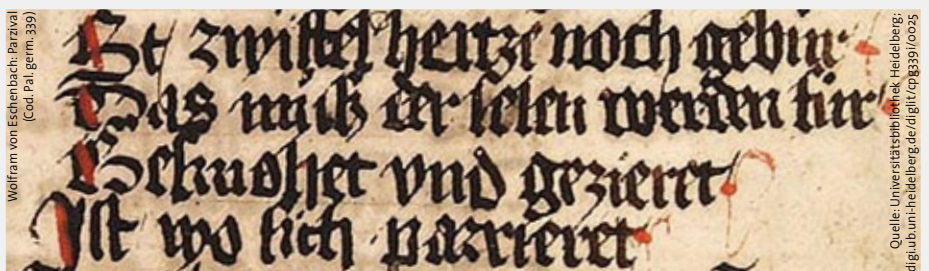 Wolfram von Eschenbach: Parzival
(Cod. Pal. germ. 339)
St zwiffel hertze noch gebur
Das muß der selen werden sur
Gesmohet vnd gezieret
Ist wo sich parrieret
Quelle: Universitätsbibliothek Heidelberg;
digi.ub.uni-heidelberg.de/diglit/cpg339i/0025